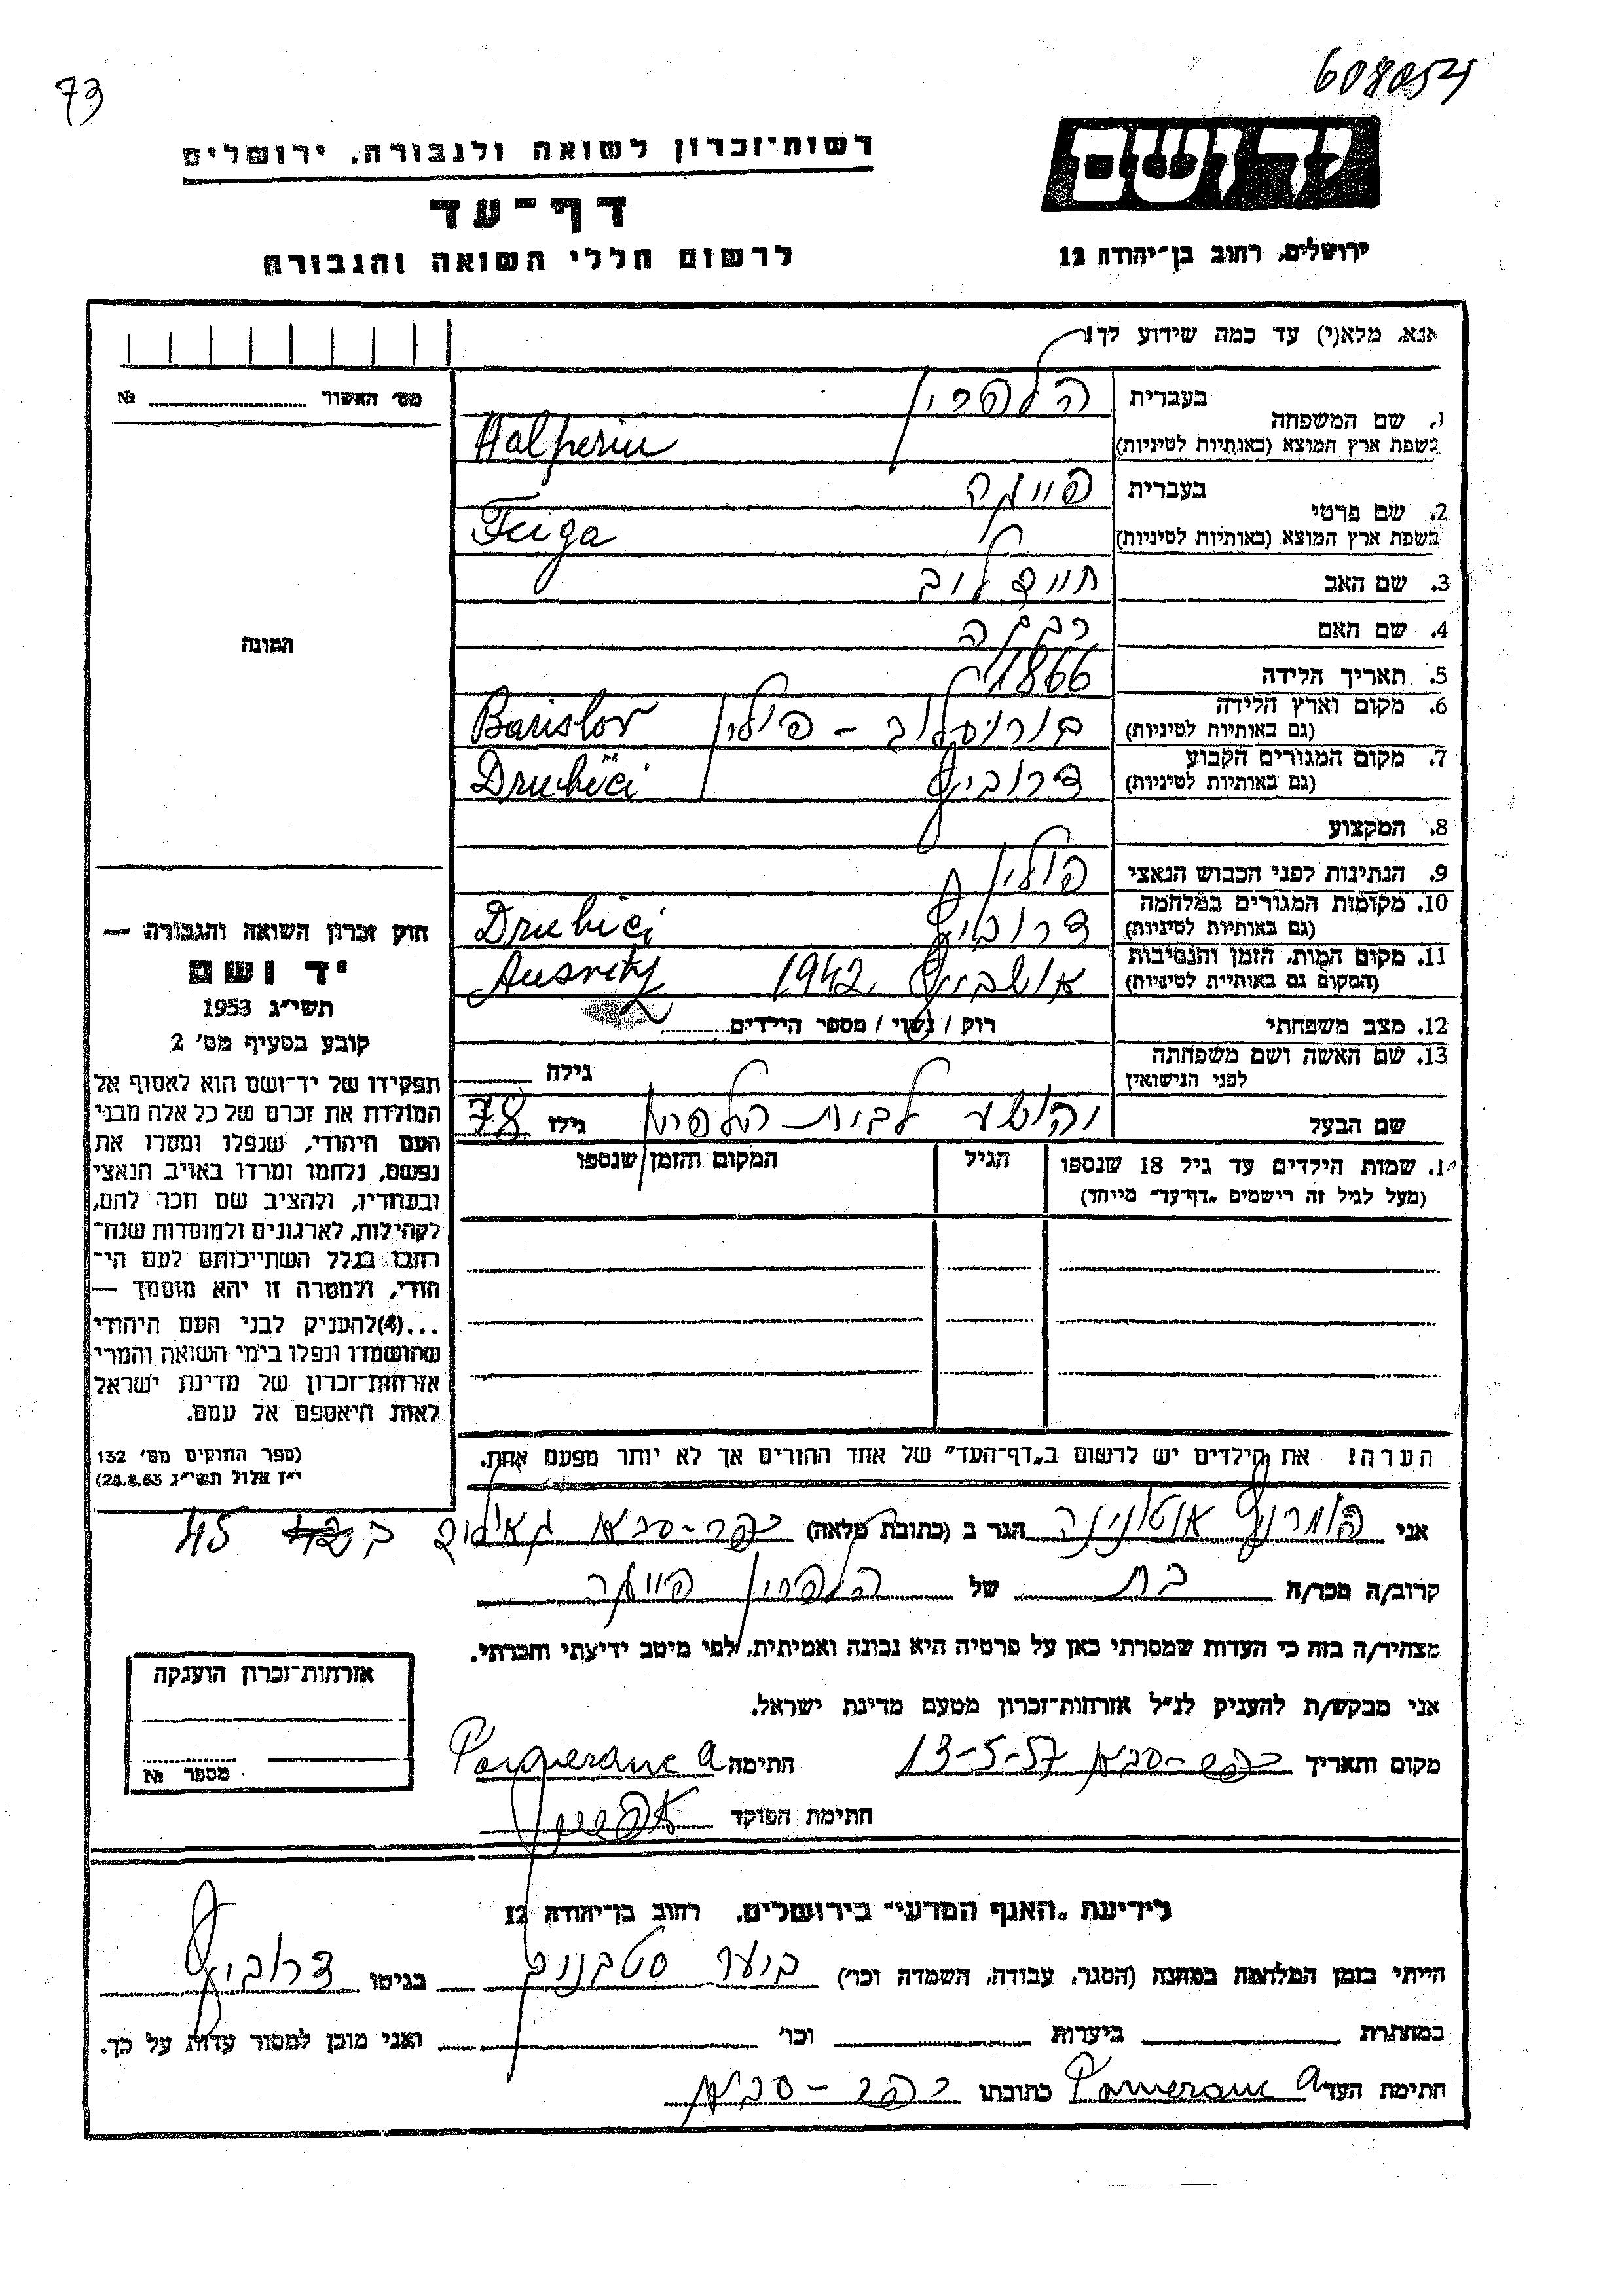 73
608054
יד ושם
רשות־זכרון לשואה ולגבורה, ירושלים
דף־עד
לרשום חללי השואה והגבורה
ירושלים, רחוב בן־יהודה 12
אנא, מלא(י) עד כמה שידוע לך!
מס׳ האשור №
1. שם המשפחה
בעברית הלפרין
בשפת ארץ המוצא (באותיות לטיניות) Halperin
2. שם פרטי
בעברית פייגה
בשפת ארץ המוצא (באותיות לטיניות) Feiga
3. שם האב חיים לוב
4. שם האם רבקה
5. תאריך הלידה 1866
6. מקום וארץ הלידה (גם באותיות לטיניות) בוריסלוב - פולין Barislov
7. מקום המגורים הקבוע (גם באותיות לטיניות) דרוביץ Druhici
8. המקצוע
9. הנתינות לפני הכבוש הנאצי פולין
10. מקומות המגורים במלחמה (גם באותיות לטיניות) דרוביץ Druhici
11. מקום המות, הזמן והנסיבות (המקום גם באותיות לטיניות) אושביץ 1942 Ausvitz
12. מצב משפחתי רוק / נשוי / מספר הילדים
13. שם האשה ושם משפחתה לפני הנישואין גילה
שם הבעל יהושע לבית הלפרין גילו 78
14. שמות הילדים עד גיל 18 שנספו (מעל לגיל זה רישמים „דף־עד״ מייחד)
הגיל
המקום והזמן שנספו
הערה: את הילדים יש לרשום ב„דף־העד״ של אחד ההורים אך לא יותר מפעם אחת.
תמונה
חוק זכרון השואה והגבורה —
יד ושם
תשי״ג 1953
קובע בסעיף מס׳ 2
תפקידו של יד־ושם הוא לאסוף אל
המולדת את זכרם של כל אלה מבני
העם היהודי, שנפלו ומסרו את
נפשם, נלחמו ומרדו באויב הנאצי
ובעוזריו, ולהציב שם וזכר להם,
לקהילות, לארגונים ולמוסדות שנח־
רבו בגלל השתייכותם לעם הי־
הודי, ולמטרה זו יהא מוסמך —
...(4)להעניק לבני העם היהודי
שהושמדו ונפלו בימי השואה והמרי
אזרחות־זכרון של מדינת ישראל
לאות היאספם אל עמם.
(ספר החוקים מס׳ 132
י״ז אלול תשי״ג 28.8.53)
אני פומרנץ אנטונינה הגר ב (כתובת מלאה) כפר-סבא גאולים ב 42 45
קרוב/ה מכר/ה בת של הלפרין פייגה
מצהיר/ה בזה כי העדות שמסרתי כאן על פרטיה היא נכונה ואמיתית, לפי מיטב ידיעתי והכרתי.
אני מבקש/ת להעניק לנ״ל אזרחות־זכרון מטעם מדינת ישראל.
מקום ותאריך כפר-סבא 13-5-57 חתימה Pomeranc A
חתימת הפוקד
אזרחות־זכרון הוענקה
מספר №
לידיעת „האגף המדעי״ בירושלים, רחוב בן־יהודה 12
הייתי בזמן המלחמה במחנה (הסגר, עבודה, השמדה וכו׳) ביער בגיטו דרוביץ
במחתרת ביערות וכו׳ ואני מוכן למסור עדות על כך.
חתימת העד Pomeranc A כתובתו כפר-סבא